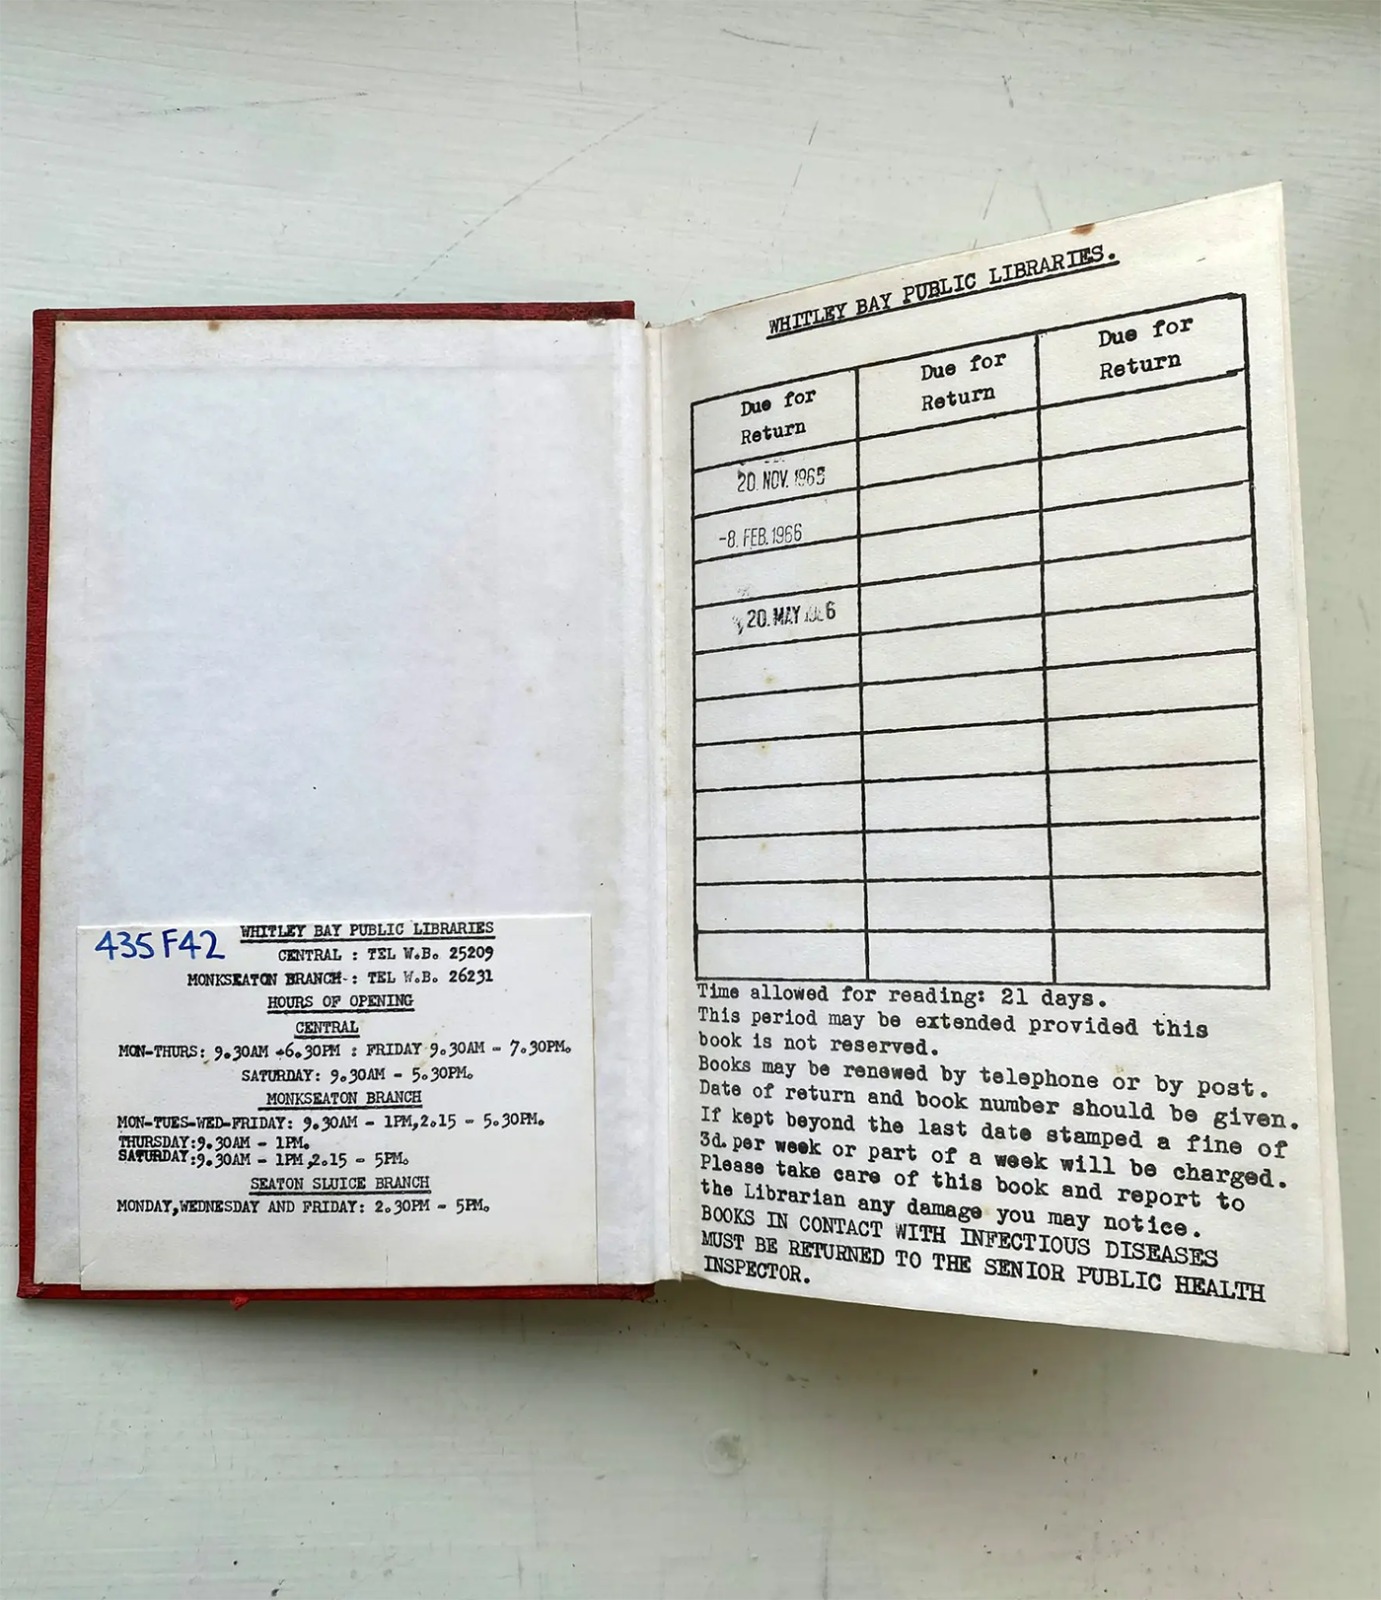 435 F42
WHITLEY BAY PUBLIC LIBRARIES
CENTRAL : TEL W.B. 25209
MONKSEATON BRANCH-: TEL W.B. 26231
HOURS OF OPENING
CENTRAL
MON-THURS: 9.30AM -6.30PM : FRIDAY 9.30AM - 7.30PM.
SATURDAY: 9.30AM - 5.30PM.
MONKSEATON BRANCH
MON-TUES-WED-FRIDAY: 9.30AM - 1PM,2.15 - 5.30PM.
THURSDAY:9.30AM - 1PM.
SATURDAY:9.30AM - 1PM,2.15 - 5PM.
SEATON SLUICE BRANCH
MONDAY,WEDNESDAY AND FRIDAY: 2.30PM - 5PM.
WHITLEY BAY PUBLIC LIBRARIES.
Due for Due for Due for
Return Return Return
20. NOV. 1965
-8. FEB. 1966
20. MAY
Time allowed for reading: 21 days.
This period may be extended provided this
book is not reserved.
Books may be renewed by telephone or by post.
Date of return and book number should be given.
If kept beyond the last date stamped a fine of
3d. per week or part of a week will be charged.
Please take care of this book and report to
the Librarian any damage you may notice.
BOOKS IN CONTACT WITH INFECTIOUS DISEASES
MUST BE RETURNED TO THE SENIOR PUBLIC HEALTH
INSPECTOR.